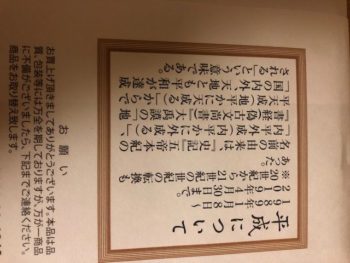 平成について
1989年1月8日〜
2019年4月30日まで
※20世紀から21世紀の転換も
あった。
名前の由来は、『史記』五帝本紀の
「内平外成(内平かに外成る)」
『書経(偽古文尚書)』大禹謨の「地
平天成(地平かに天成る)」から
「国の内外、天地とも平和が達成
される」という意味である
お願い
お買上げ頂きましてありがとうございます。本品は品
質、包装等には万全を期しておりますが、万が一商品
に不備がございましたら、下記までご連絡ください。
商品をお取り替え致します。